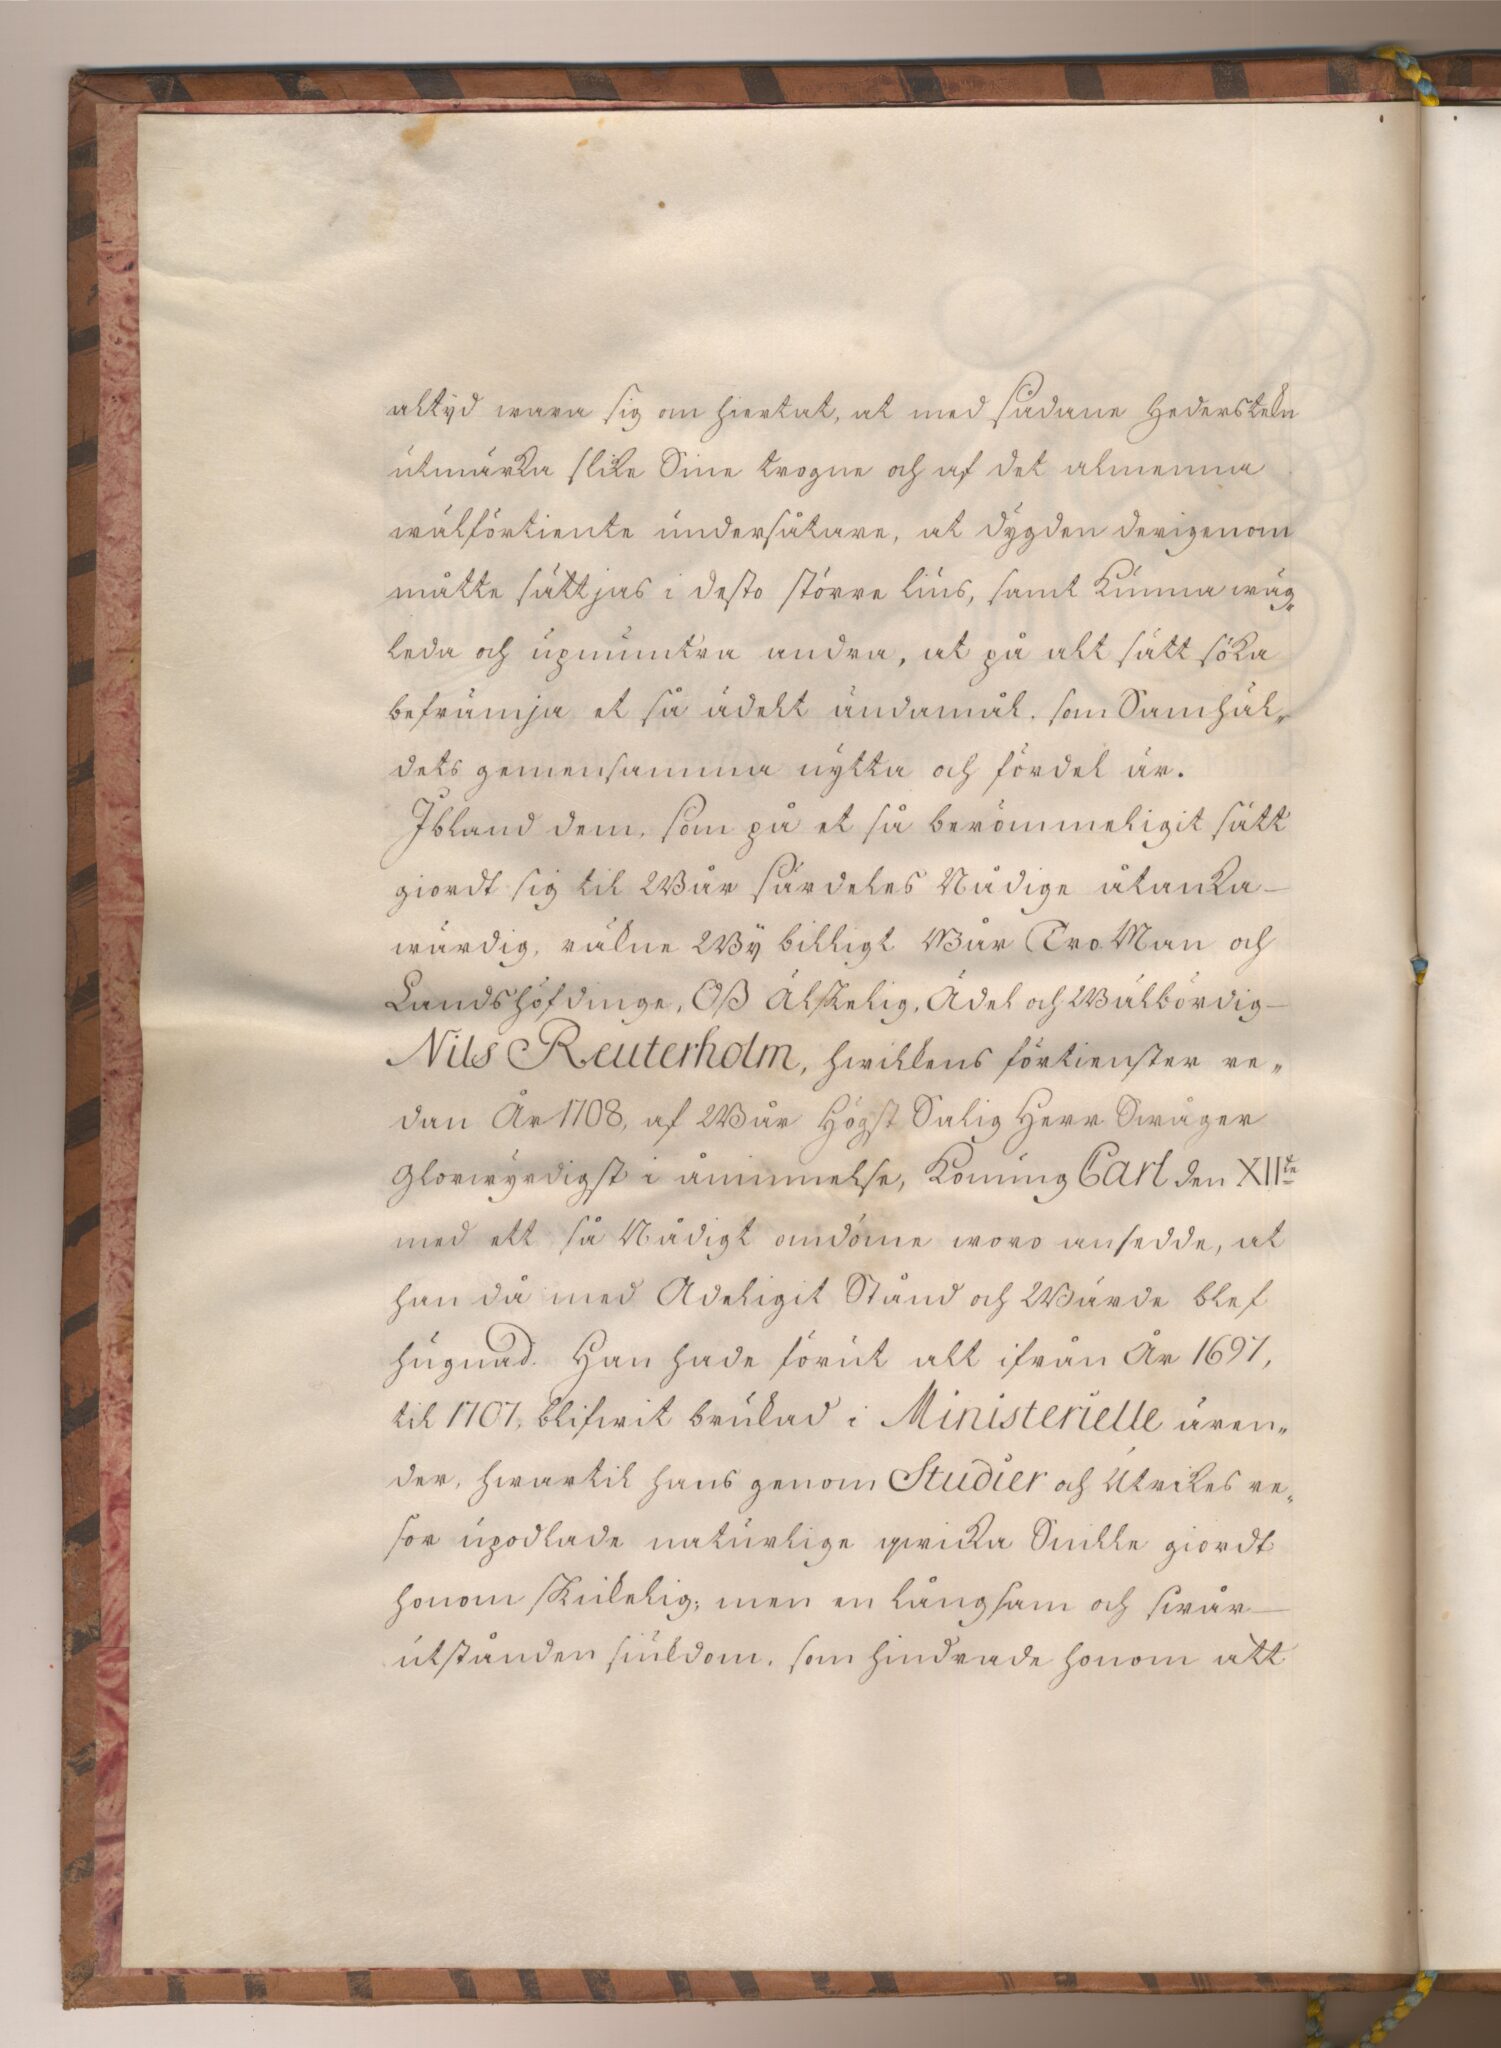 altÿd wara sig om hiertat, at med sådane Hedersteken
utmärka slike Sine trogne och af det almenna
wälförtiente undersåtare, at dygden derigenom
måtte sättjas i desto större lius, samt kunna wäg„
leda och upmuntra andra, at på alt sätt söka
befrämja et så ädelt ändamål, som Samhäl„
dets gemensamma nytta och fördel är.
Ibland dem, som på et så berömmeligit sätt
giordt sig til Wår särdeles Nådige åtanka
würdig, räkne Wÿ billigt Wår Tro Man och
Landshöfdinge, Oß Älskelig, Ädel och Wälbördig
Nils Reuterholm, hwilkens förtienster re„
dan År 1708, af Wår Högst Salig Herr Swåger
Glorwyrdigst i åminnelse, Konung Carl den XII:te
med ett så Nådigt omdöme woro ansedde, at
han då med Adeligit Stånd och Wärde blef
hugnad. Han hade förut alt ifrån År 1697,
til 1707, blifwit brukad i Ministerielle ären„
der, hwartil hans genom Studier och Utrikes re„
sor upodlade naturlige qwicka Snille giordt
honom skickelig; men en långsam och swår
utstånden siukdom, som hindrade honom att